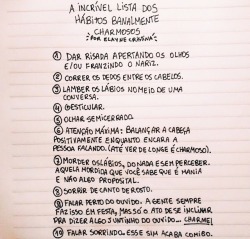 A INCRÍVEL LISTA DOS
HÁBITOS BANALMENTE
CHARMOSOS
POR ELAYNE CRISTINA
1 DAR RISADA APERTANDO OS OLHOS
E/OU FRANZINDO O NARIZ.
2 CORRER OS DEDOS ENTRE OS CABELOS.
3 LAMBER OS LÁBIOS NO MEIO DE UMA
CONVERSA.
4 GESTICULAR.
5 OLHAR SEMICERRADO.
6 ATENÇÃO MÁXIMA: BALANÇAR A CABEÇA
POSITIVAMENTE ENQUANTO ENCARA A
PESSOA FALANDO. (ATÉ VER DE LONGE É CHARMOSO).
7 MORDER OS LÁBIOS, DO NADA E SEM PERCEBER.
AQUELA MORDIDA QUE VOCÊ SABE QUE É MANIA
E NÃO ALGO PROPOSITAL.
8 SORRIR DE CANTO DE ROSTO.
9 FALAR PERTO DO OUVIDO. A GENTE SEMPRE
FAZ ISSO EM FESTA, MAS SÓ O ATO DE SE INCLINAR
PRA DIZER ALGO JUNTINHO DO OUVIDO... CHARME!
10 FALAR SORRINDO. ESSE SIM ACABA COMIGO.